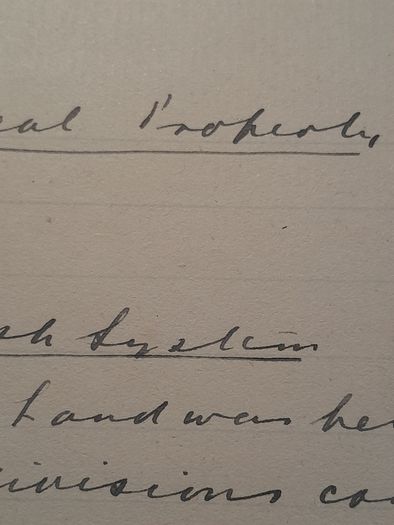 eal Property
sh System
Land was he
divisions ca